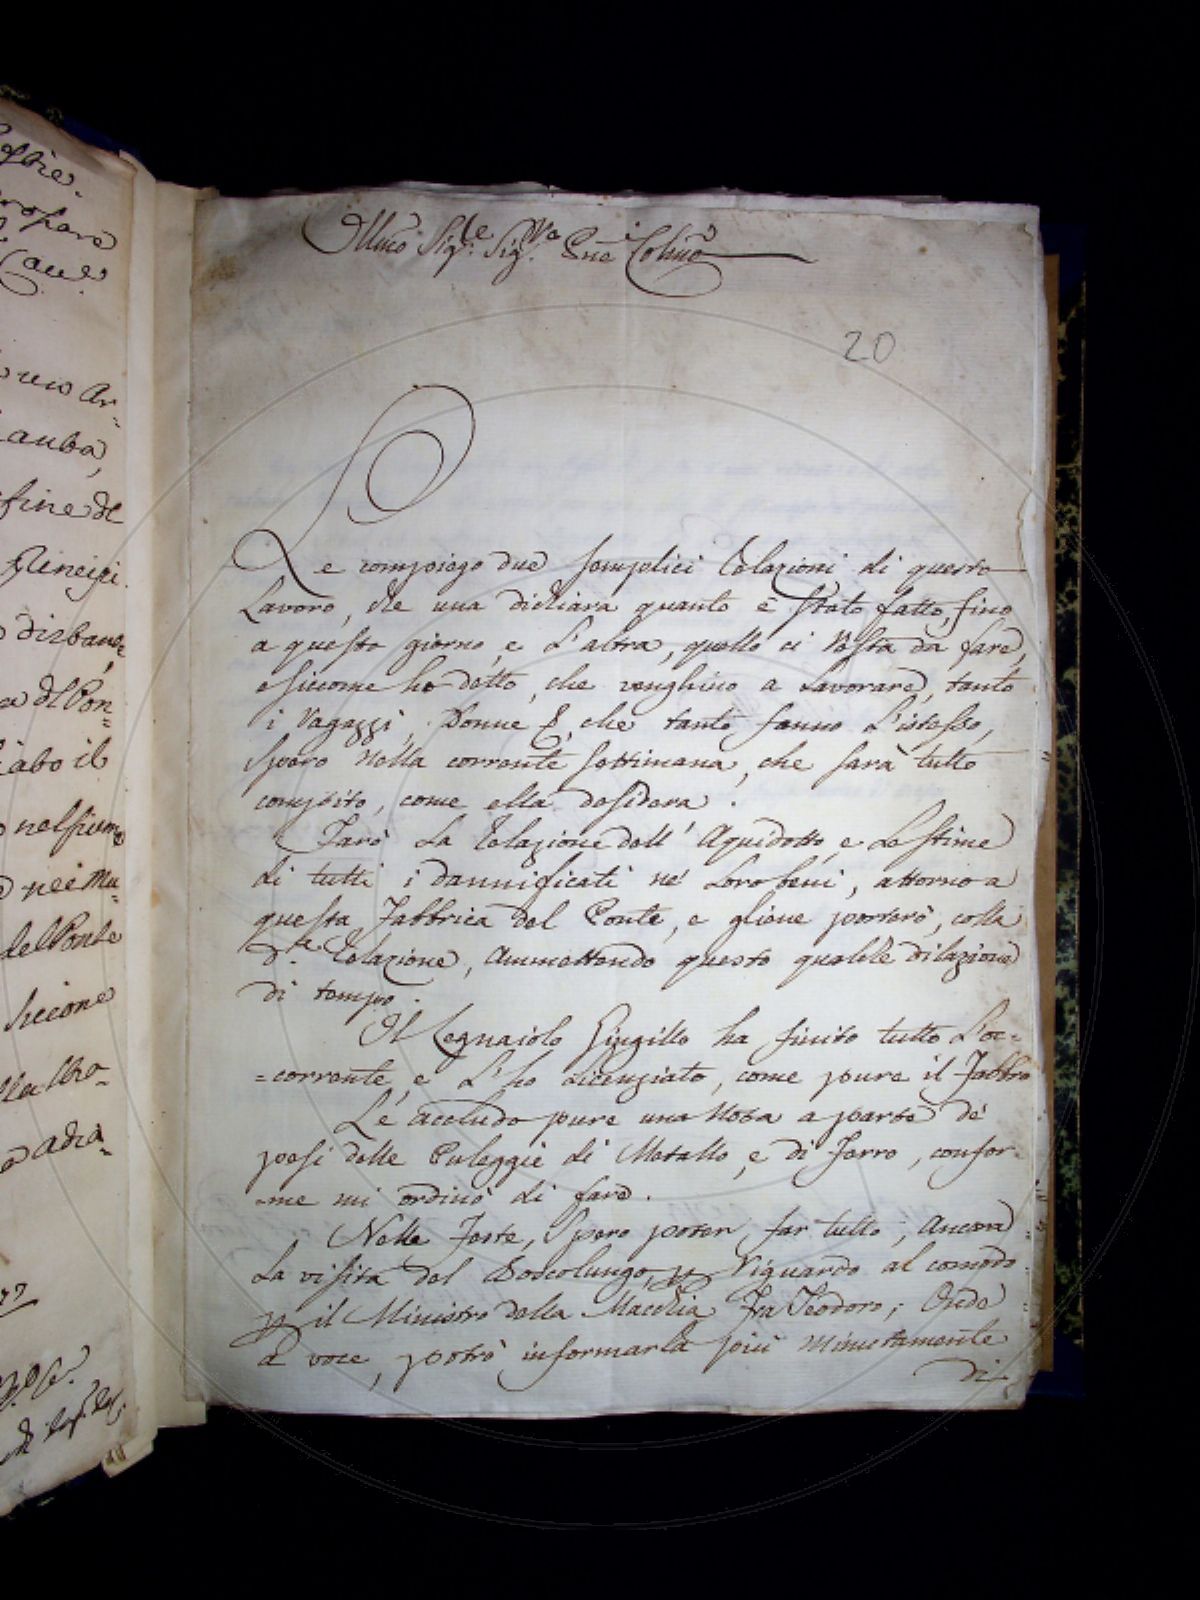 estre.
Cau.e
Ar-
auba,
fine dl
Principi.
disban-
a dl Pon-
abo il
nel fium
ne è Mu-
del Ponte
siccome
alla Mo-
adia-
Illmo Sig.le Sig. Pne Colmo
20
Le compiego due semplici Relazioni di questo
Lavoro, che una dichiara quanto è stato fatto, fino
a questo giorno, e L'altra, quello ci Resta da fare,
e siccome ho detto, che venghino a Lavorare, tanto
i Ragazzi, Donne &, che tanto fanno L'istesso,
spero Nella corrente settimana, che sarà tutto
compito, come ella desidera.
Farò La Relazione dell'Aquidotto, e Le stime
di tutti i dannificati né Loro beni, attorno a
questa Fabbrica del Ponte, e gliene porterò, colla
d.a Relazione, Ammettendo questo qualche dilazione
di tempo.
Il Legnaiolo Gingillo ha finito tutto L'oc-
=corrente, e L'ho Licenziato, come pure il Fabbro
Le accludo pure una Nota a parte de'
pesi delle Puleggie di Metallo, e di Ferro, confor-
-me mi ordinò di fare.
Nelle Feste, Spero poter far tutto, Ancora
La visita del Boscolungo, p Riguardo al comodo
p il Ministro della Macchia Fra Teodoro; Onde
a voce, potrò informarla più Minutamente
di